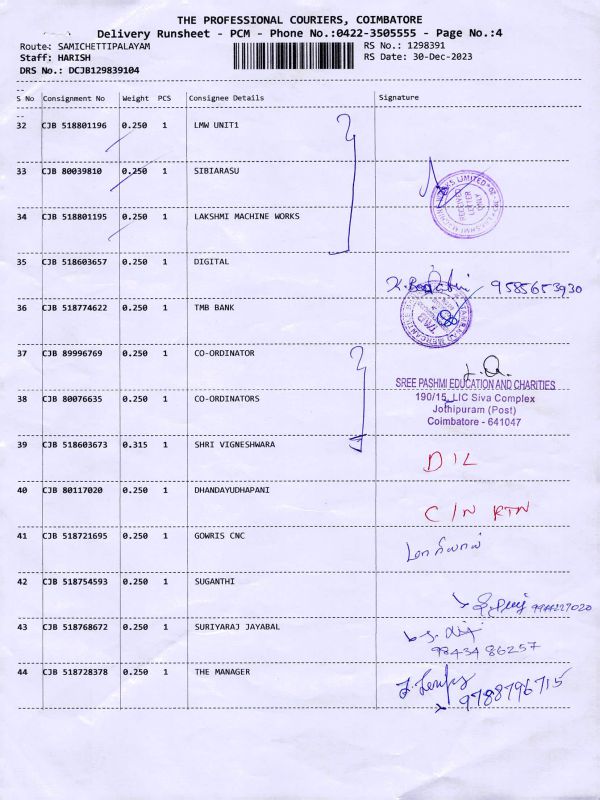 THE PROFESSIONAL COURIERS, COIMBATORE
Delivery Runsheet - PCM - Phone No.:0422-3505555 - Page No.:4
Route: SAMICHETTIPALAYAM
Staff: HARISH
DRS No.: DCJB129839104
RS No.: 1298391
RS Date: 30-Dec-2023
S No Consignment No Weight PCS Consignee Details Signature
32 CJB 518801196 0.250 1 LMW UNIT1
33 CJB 80039810 0.250 1 SIBIARASU
34 CJB 518801195 0.250 1 LAKSHMI MACHINE WORKS
35 CJB 518603657 0.250 1 DIGITAL
9585653930
36 CJB 518774622 0.250 1 TMB BANK
37 CJB 89996769 0.250 1 CO-ORDINATOR
SREE PASHMI EDUCATION AND CHARITIES
190/15, LIC Siva Complex
Jothipuram (Post)
Coimbatore - 641047
38 CJB 80076635 0.250 1 CO-ORDINATORS
39 CJB 518603673 0.315 1 SHRI VIGNESHWARA
D/L
40 CJB 80117020 0.250 1 DHANDAYUDHAPANI
C/N RTN
41 CJB 518721695 0.250 1 GOWRIS CNC
42 CJB 518754593 0.250 1 SUGANTHI
9944227020
43 CJB 518768672 0.250 1 SURIYARAJ JAYABAL
98434 86257
44 CJB 518728378 0.250 1 THE MANAGER
9788796715